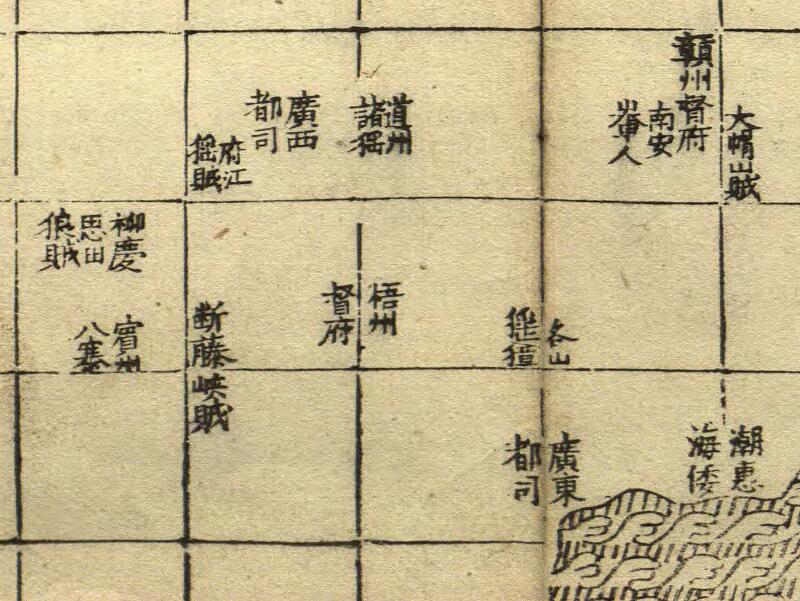 大帽山賊
贛州督府
南安
輋人
道州
諸猺
廣西
都司
府江
猺賊
梧州
督府
各山
猺獞
柳慶
思田
狼賊
賓州
八寨
断藤峽賊
潮惠
海倭
廣東
都司